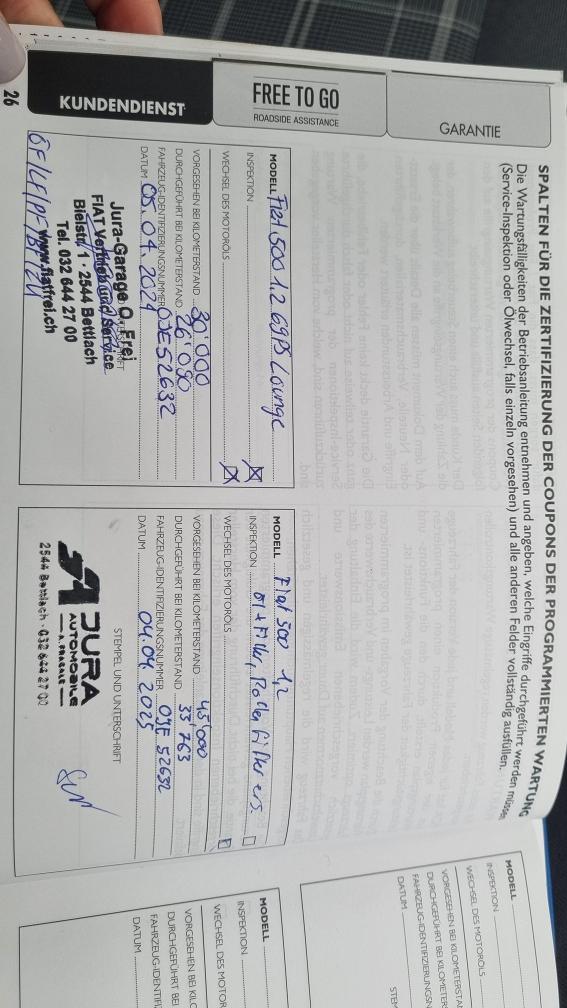 KUNDENDIENST
FREE TO GO
ROADSIDE ASSISTANCE
GARANTIE
26
SPALTEN FÜR DIE ZERTIFIZIERUNG DER COUPONS DER PROGRAMMIERTEN WARTUNG
Die Wartungsfälligkeiten der Betriebsanleitung entnehmen und angeben, welche Eingriffe durchgeführt werden müssen
(Service-Inspektion oder Ölwechsel, falls einzeln vorgesehen) und alle anderen Felder vollständig ausfüllen.
MODELL Fiat 500 1.2 69PS Lounge
INSPEKTION
WECHSEL DES MOTORÖLS
VORGESEHEN BEI KILOMETERSTAND 30'000
DURCHGEFÜHRT BEI KILOMETERSTAND 26'090
FAHRZEUG-IDENTIFIZIERUNGSNUMMER 0JE52632
DATUM 05.04.2024
Jura-Garage O. Frei
FIAT Vertrieb und Service
Bielstr. 1 · 2544 Bettlach
Tel. 032 644 27 00
www.fiatfrei.ch
MODELL Fiat 500 1,2
INSPEKTION Öl + Filter, Pollenfilter ers.
WECHSEL DES MOTORÖLS
VORGESEHEN BEI KILOMETERSTAND 45'000
DURCHGEFÜHRT BEI KILOMETERSTAND 33'763
FAHRZEUG-IDENTIFIZIERUNGSNUMMER 0JE 52632
DATUM 04.04.2025
STEMPEL UND UNTERSCHRIFT
JURA
AUTOMOBILE
2544 Bettlach · 032 644 27 00
MODELL
INSPEKTION
WECHSEL DES MOTORÖLS
VORGESEHEN BEI KILOMETERSTA
DURCHGEFÜHRT BEI KILOMETERS
FAHRZEUG-IDENTIFIZIERUNGSN
DATUM
STE
MODELL
INSPEKTION
WECHSEL DES MOTOR
VORGESEHEN BEI KILO
DURCHGEFÜHRT BEI
FAHRZEUG-IDENTIFI
DATUM